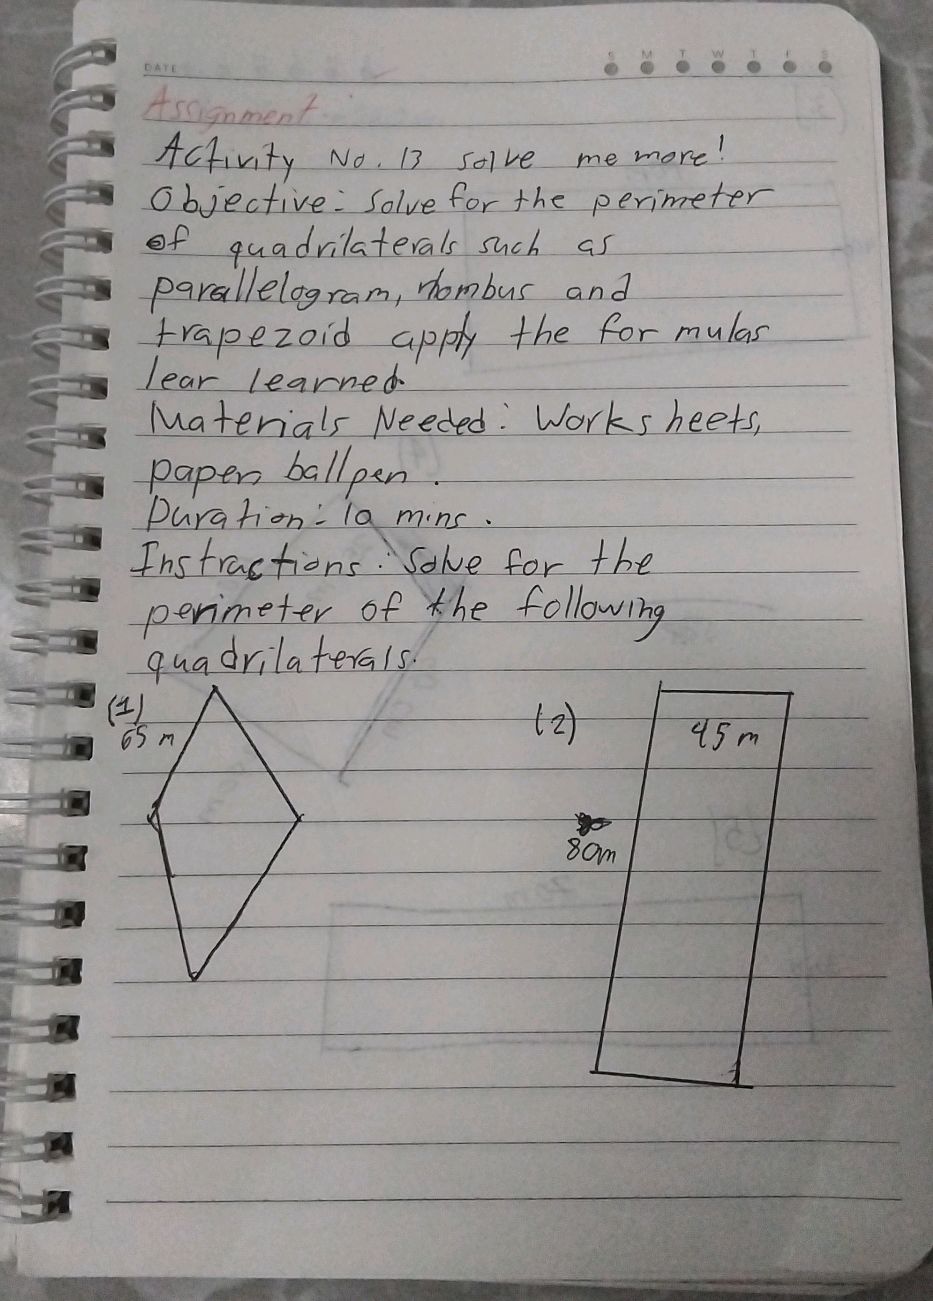 DATE
S M T W T F S
Assignment
Activity No. 13 solve me more!
Objective: Solve for the perimeter
of quadrilaterals such as
parallelogram, rhombus and
trapezoid apply the for mulas
lear learned.
Materials Needed: Work sheets,
paper, ballpen.
Duration: 10 mins.
Instractions: Solve for the
perimeter of the following
quadrilaterals.
(1)
65 m
(2)
45 m
80m